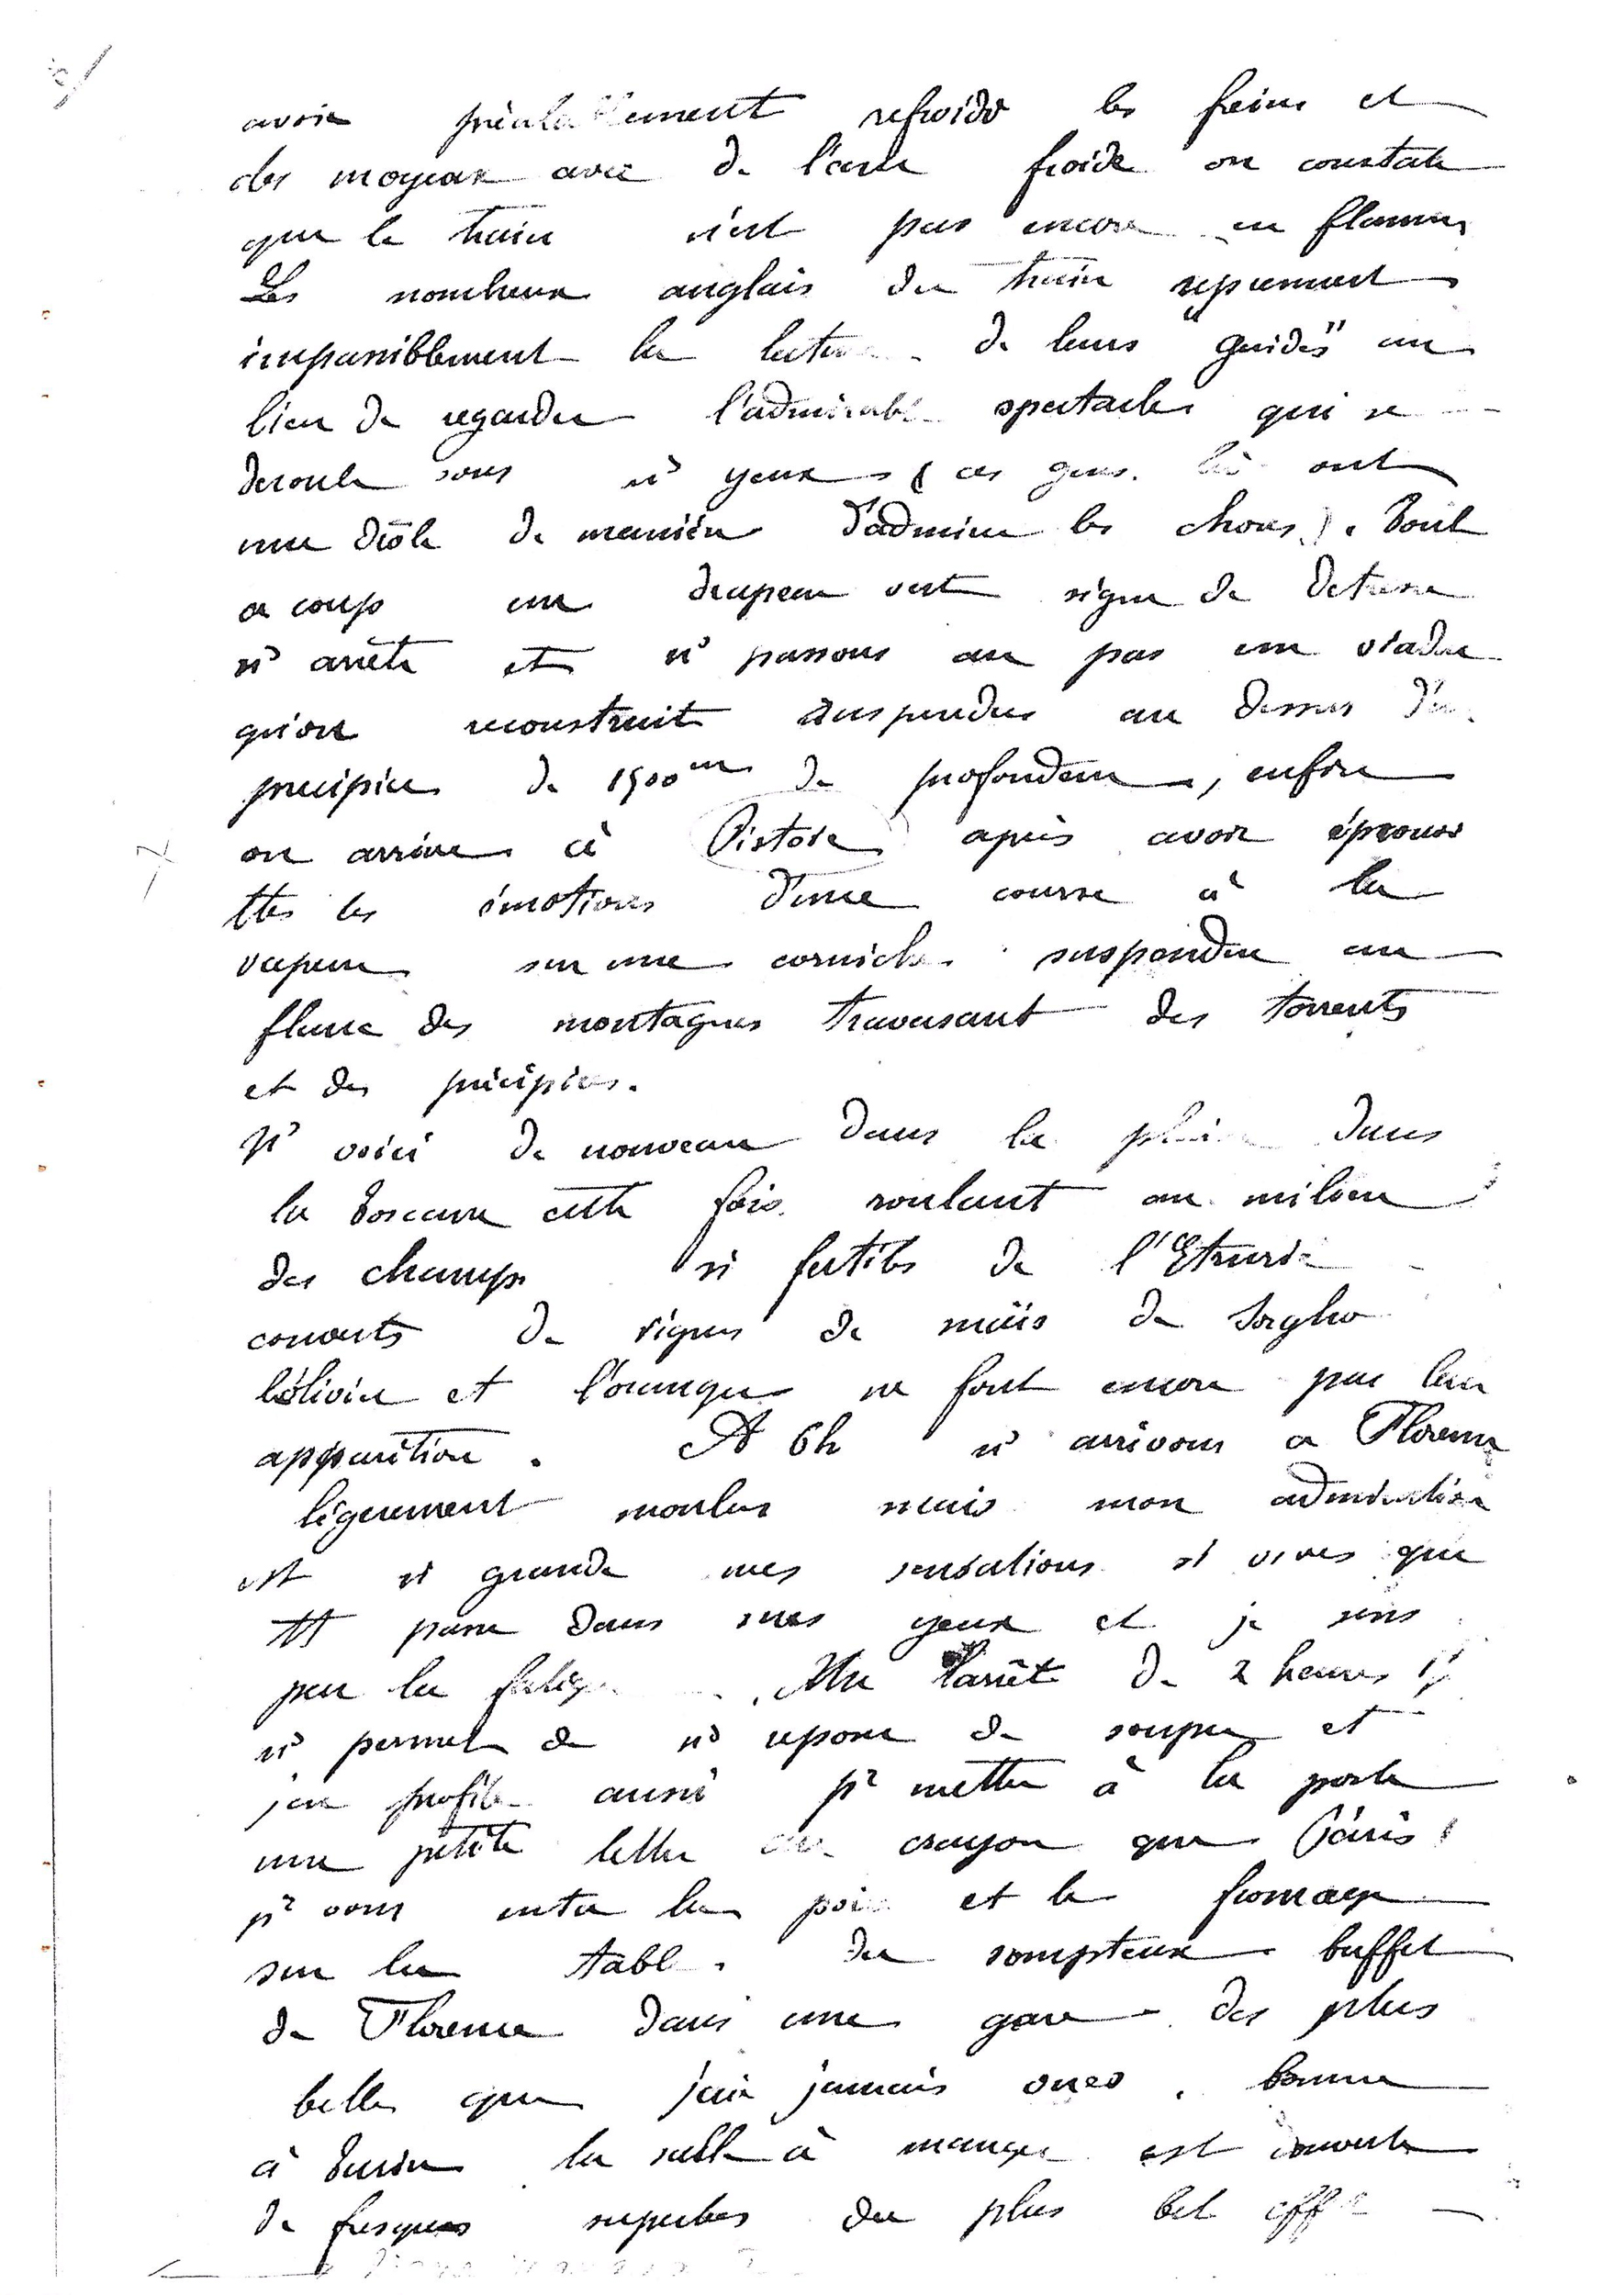 avoir préalablement refroidi les freins et
des moyeux avec de l'eau froide on constate
que le train n'est pas encore en flammes
Les nombreux anglais du train reprennent
impassiblement la lecture de leurs "guides" au
lieu de regarder l'admirable spectacle qui se
deroule sous ns yeux (ces gens là ont
une drôle de manière d'admirer les choses). Tout
a coup un drapeau vert signe de detresse
ns arrête et ns passons au pas un viaduc
qu'on reconstruit suspendu au dessus d'un
precipice de 1500m de profondeur, enfin
on arrive à Pistoie après avoir éprouvé
ttes les émotions d'une course à la
vapeur sur une corniche suspendue au
flanc des montagnes traversant des torrents
et des précipices.
Ns voici de nouveau dans la plaine dans
la Toscane cette fois roulant au milieu
des champs si fertiles de l'Etrurie
couverts de vignes de maïs de Sorgho
l'olivier et l'oranger ne font encore pas leur
apparition. A 6h ns arrivons a Florence
légerement moulus mais mon admiration
est si grande mes sensations si vives que
tt passe dans mes yeux et je sens
peu la fatigue. Un arrêt de 2 heures 1/2
ns permet de ns reposer de souper et
j'en profite aussi pr mettre à la poste
une petite lettre au crayon que j'écris
pr vous entre la poire et le fromage
sur la table du somptueux buffet
de Florence dans une gare des plus
belles que j'aie jamais vues. Comme
à Turin la salle à manger est couverte
de fresques superbes du plus bel effet